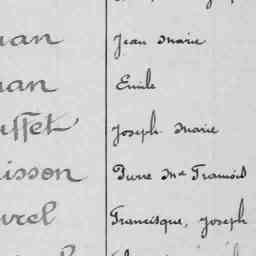 uan Jean Marie
uan Emile
uffet Joseph Marie
uisson Pierre Me François
urel Francisque, Joseph